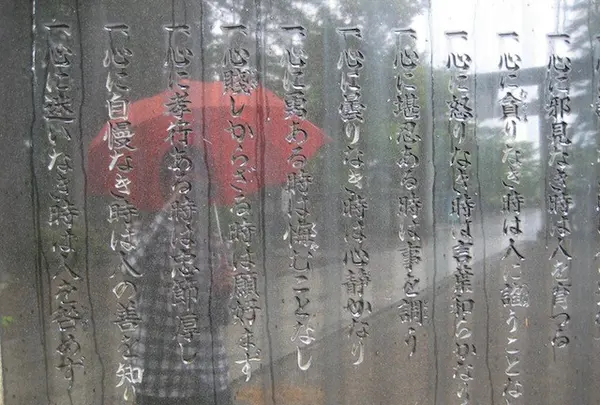 一心に邪見なき時は人を育つる
一心に貪りなき時は人に諂うことな
一心に怒りなき時は言葉和らかなり
一心に堪忍ある時は事を調う
一心に曇りなき時は心静かなり
一心に勇ある時は悔むことなし
一心賤しからざる時は願好まず
一心に孝行ある時は忠節厚し
一心に自慢なき時は人の善を知り
一心に迷いなき時は人を咎めず